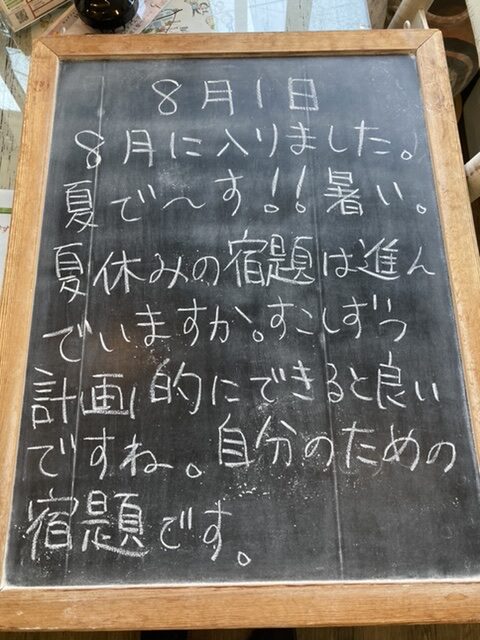 8月1日
8月に入りました。
夏で〜す!! 暑い。
夏休みの宿題は進ん
でいますか。すこしずつ
計画的にできると良い
ですね。自分のための
宿題です。